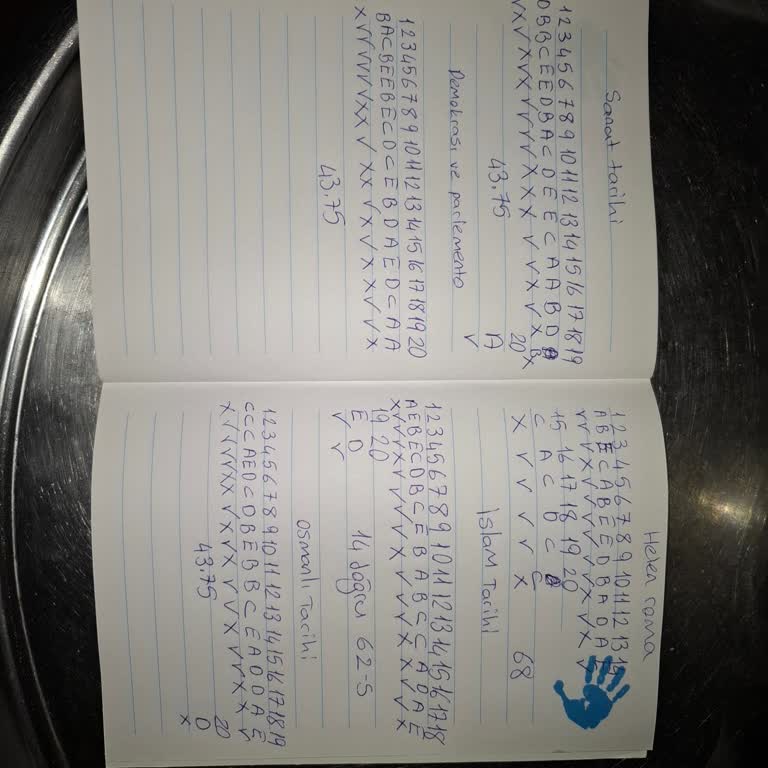 Sanat tarihi
1 2 3 4 5 6 7 8 9 10 11 12 13 14 15 16 17 18 19
D B B C E E D B A C D E E C A A B D B
20
A
✓
43.75
Demokrasi ve parlemento
1 2 3 4 5 6 7 8 9 10 11 12 13 14 15 16 17 18 19 20
B A C B E E B E C D C E B D A E D C A A
43.75
Helen roma
1 2 3 4 5 6 7 8 9 10 11 12 13 14
A B E C A B E E D B A D A E
✓ ✓ ✓ X ✓ ✓ ✓ ✓ ✓ ✓ X ✓ X ✓
15 16 17 18 19 20
C A C D C C
X ✓ ✓ ✓ ✓ X 68
İslam Tarihi
1 2 3 4 5 6 7 8 9 10 11 12 13 14 15 16 17 18
A E B E C D B C E B A B C C A D A E
19 20
E D
✓ ✓ 14 doğru 62-5
Osmanlı Tarihi
1 2 3 4 5 6 7 8 9 10 11 12 13 14 15 16 17 18 19
C C C A E D C D B E B B C E A D D A E
20
D
X
43.75